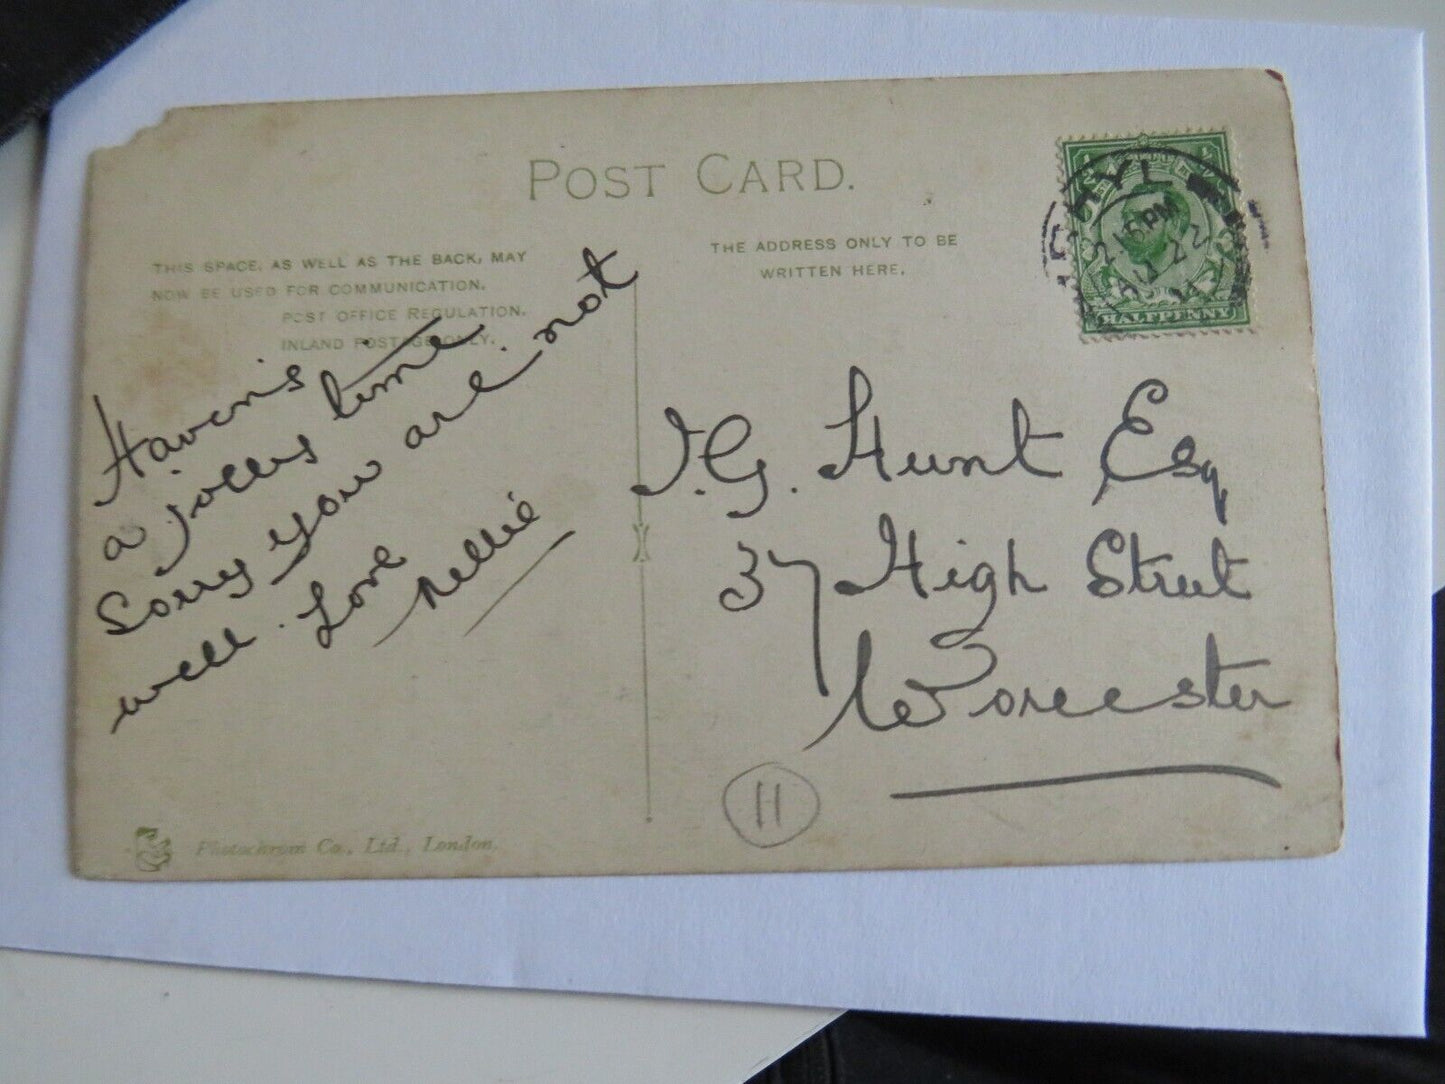 POST CARD.
THIS SPACE, AS WELL AS THE BACK, MAY
NOW BE USED FOR COMMUNICATION.
POST OFFICE REGULATION.
INLAND POSTAGE ONLY.
THE ADDRESS ONLY TO BE
WRITTEN HERE.
RHYL
2.15 PM
AU 22
HALFPENNY
Haven's
a jolly time
Sorry you are not
well. Love
Nellie
J.G. Hunt Esq
37 High Street
Worcester
H
Photochrom Co., Ltd., London.